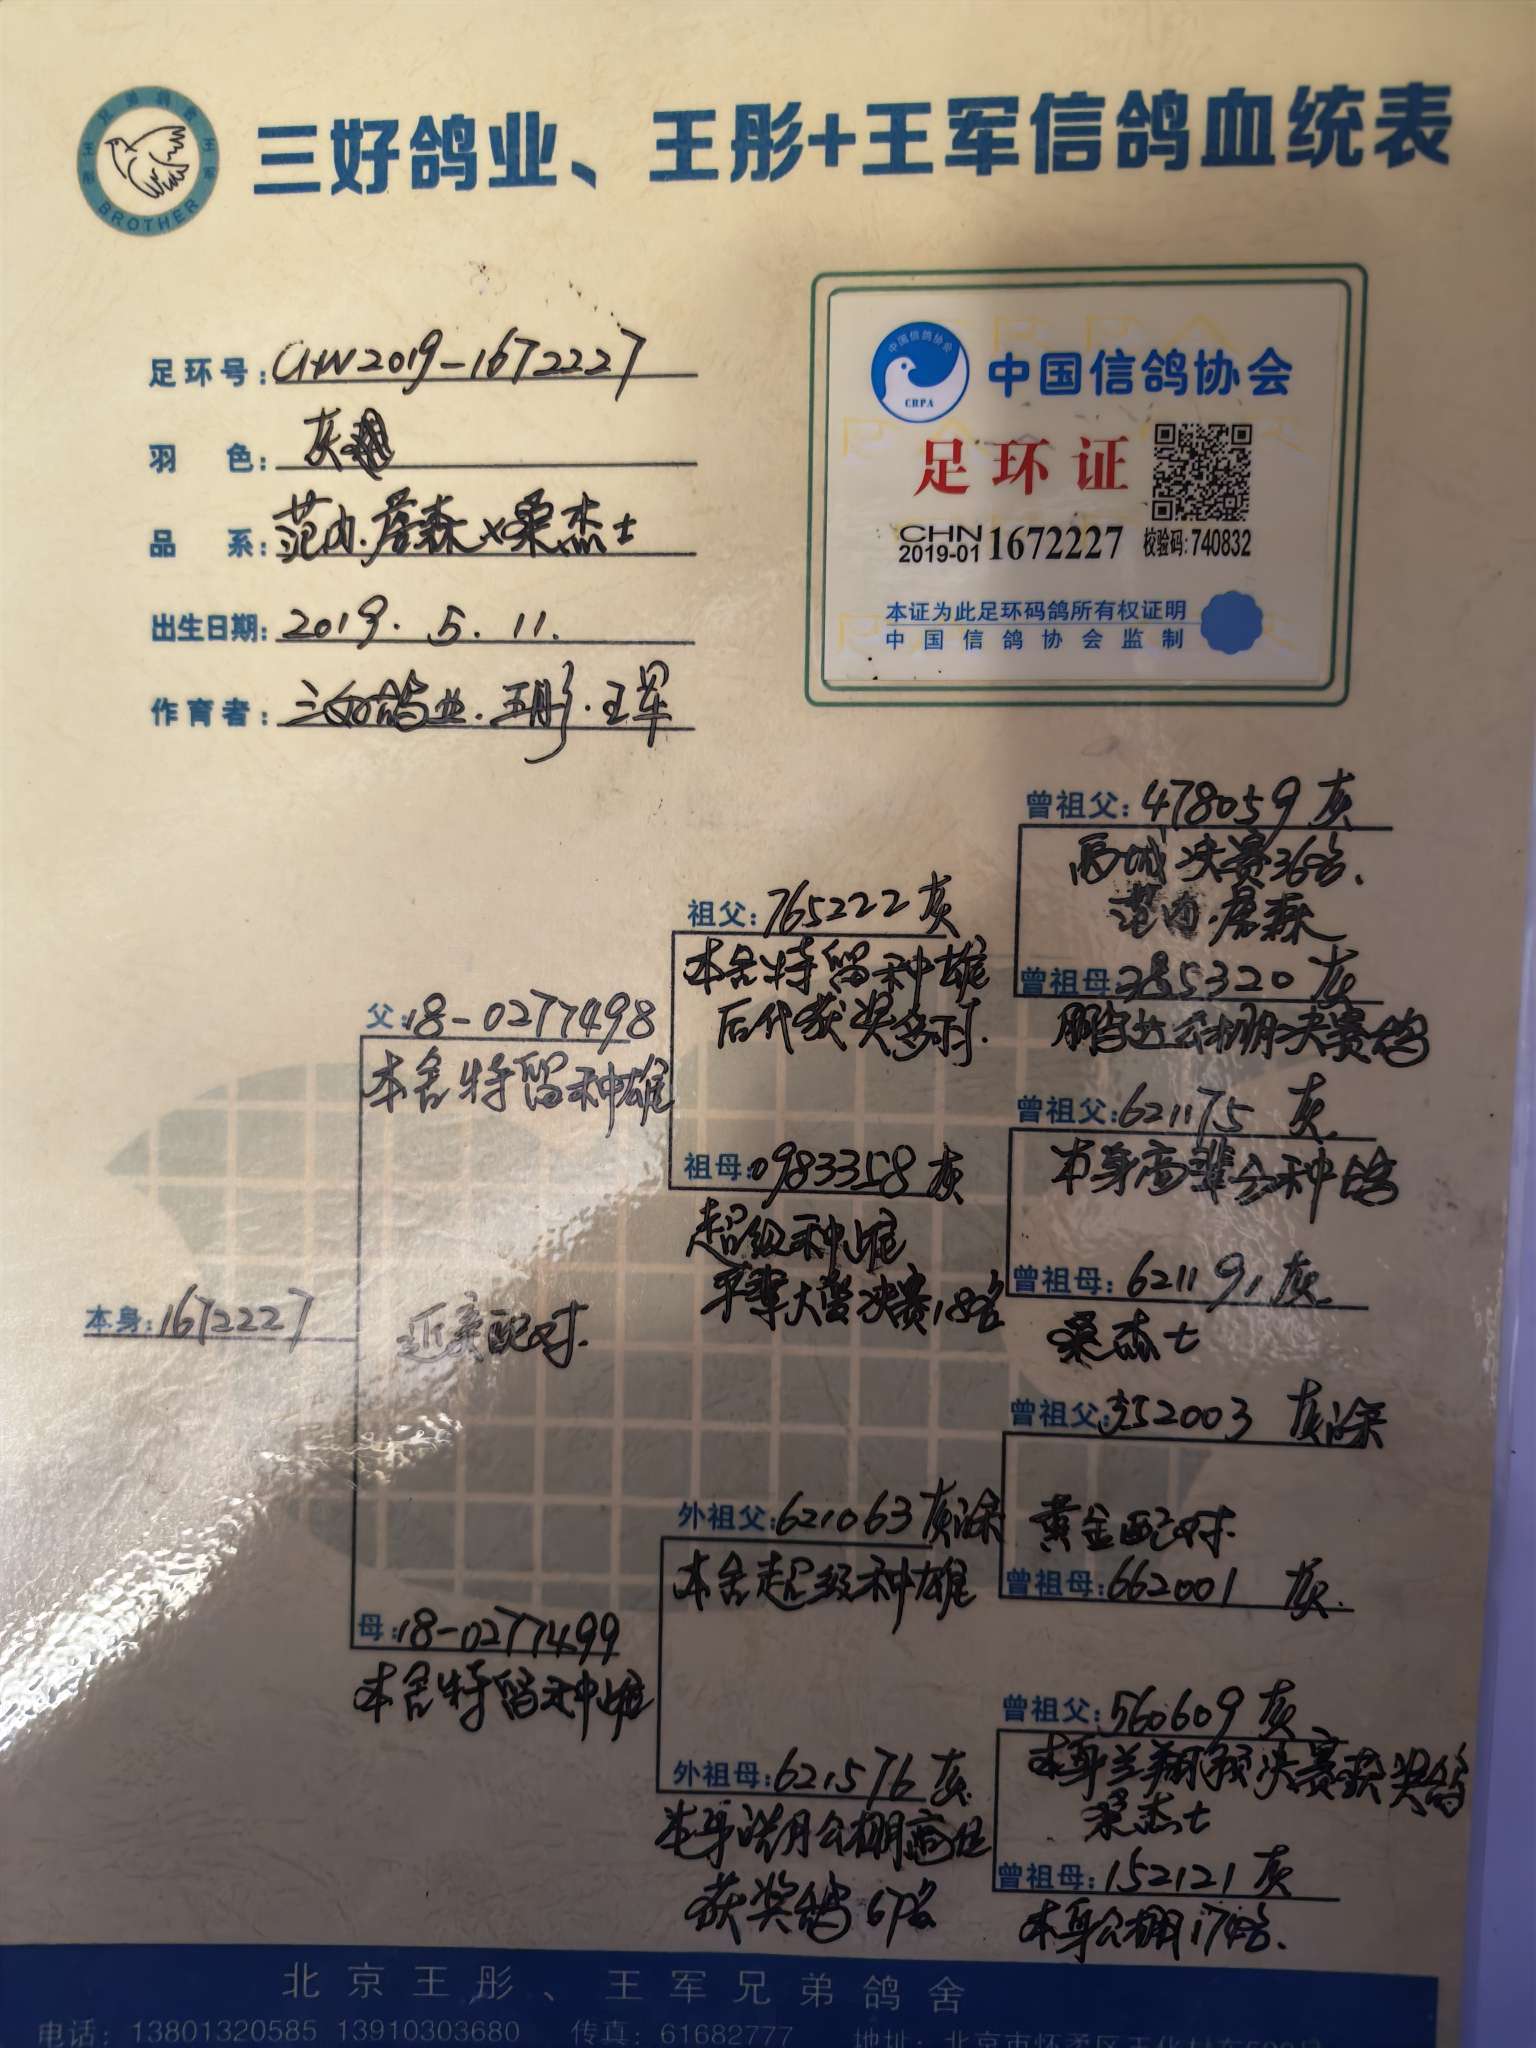 三好鸽业、王彤+王军信鸽血统表
BROTHER
足环号:CHN2019-1672227
羽 色:灰
品 系:范内.詹森×桑杰士
出生日期:2019.5.11.
作育者:三好鸽业.王彤.王军
中国信鸽协会
CRPA
中国信鸽协会
足环证
CHN
2019-01 1672227 校验码:740832
本证为此足环码鸽所有权证明
中国信鸽协会监制
曾祖父:478059 灰
西城决赛36名.
范内.詹森
祖父:765222灰
本舍特留种雄
后代获奖多羽.
曾祖母:385320 灰
鹏宇达公棚决赛鸽
父:18-0277498
本舍特留种雄
曾祖父:621175 灰.
本身高辈分种鸽
祖母:0983358灰
超级种雌
平辈大营决赛18名
曾祖母:621191灰.
桑杰士
本身:1672227
近亲配对.
曾祖父:352003 灰深
外祖父:621063灰深
本舍超级种雄
黄金配对.
曾祖母:662001 灰.
母:18-0277499
本舍特留种雌
曾祖父:560609灰
本身兰翔预决赛获奖鸽
桑杰士
外祖母:621576灰.
本身皓月公棚高位
获奖鸽67名
曾祖母:152121灰
本身公棚174名.
北京王彤、王军兄弟鸽舍
电话:13801320585 13910303680 传真:61682777 地址:北京市怀柔区